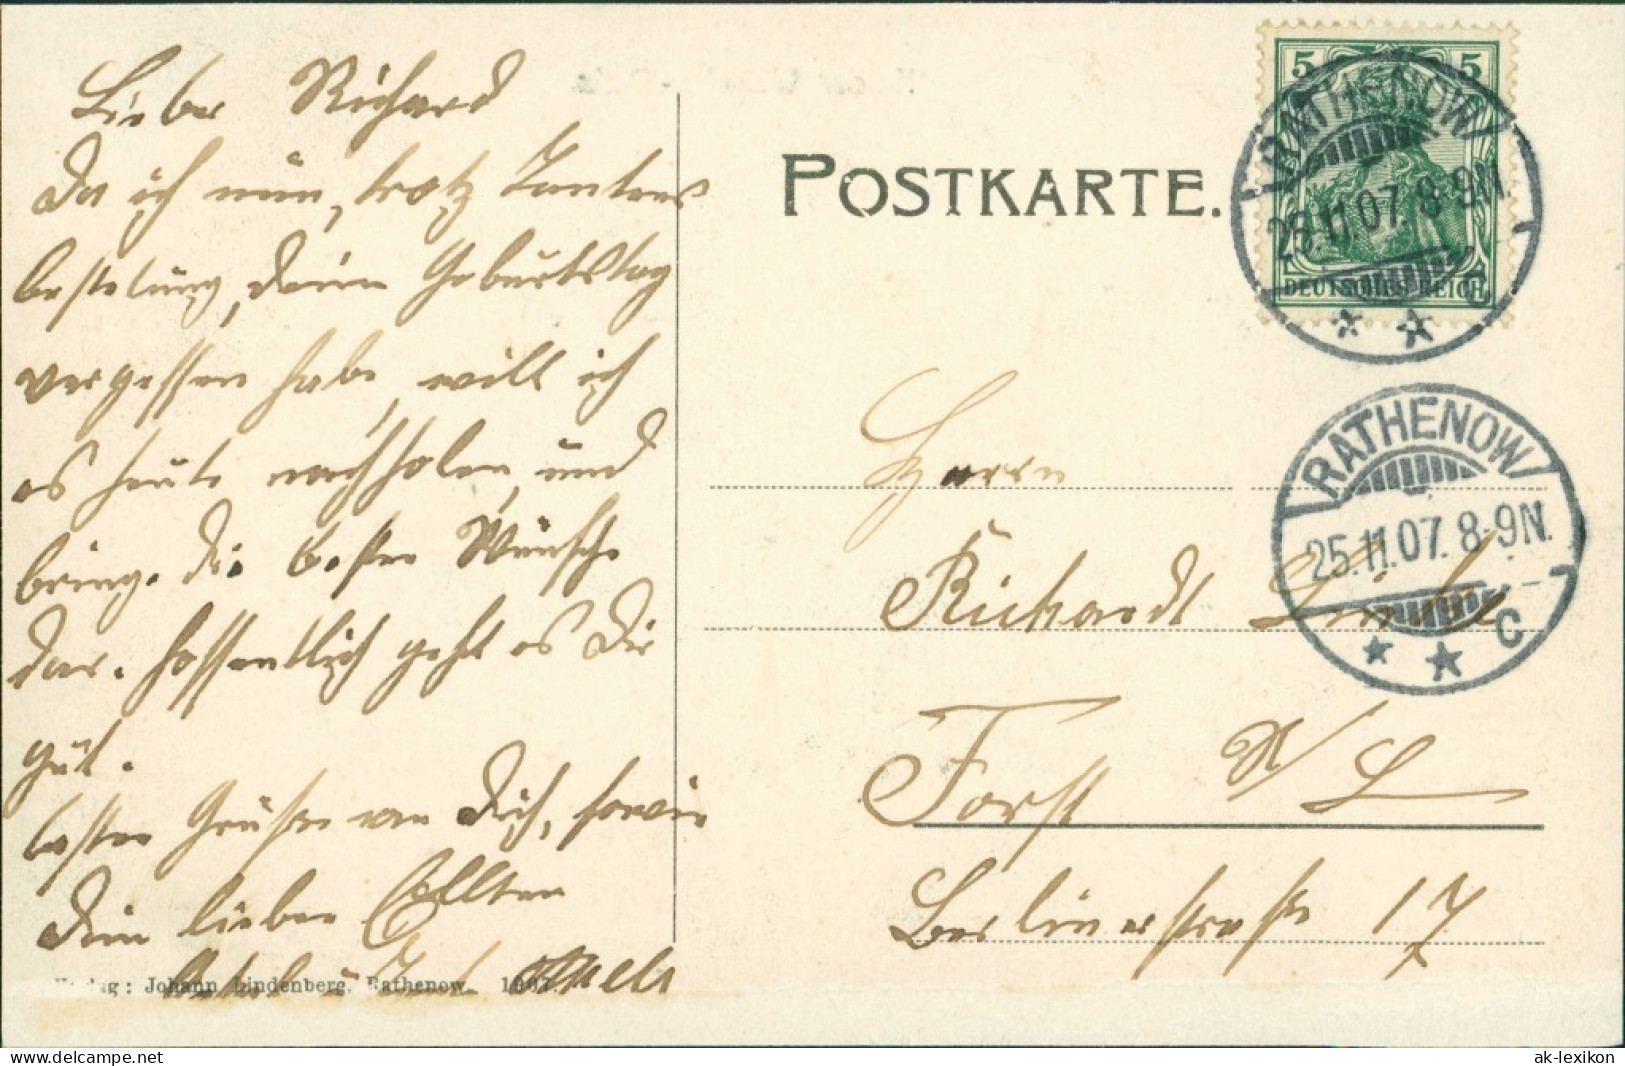 Lieber Richard
Da ich nun, trotz Tantens
bestelung, dein Geburtstag
vergessen habe, will ich
es heute nachholen, und
bringe die besten Wünsche
dar. Hoffentlich geht es Dir
gut.
besten Grüße an Dich, sowie
Dein lieben Elltern
Verlag: Johann Lindenberg, Rathenow. 1907.
POSTKARTE.
5 5
DEUTSCHES REICH
RATHENOW
25.11.07. 8-9N.
RATHENOW
25.11.07. 8-9N.
C
Herrn
Richardt
Forst N/L
Berlinerstraße 17
www.delcampe.net
ak-lexikon